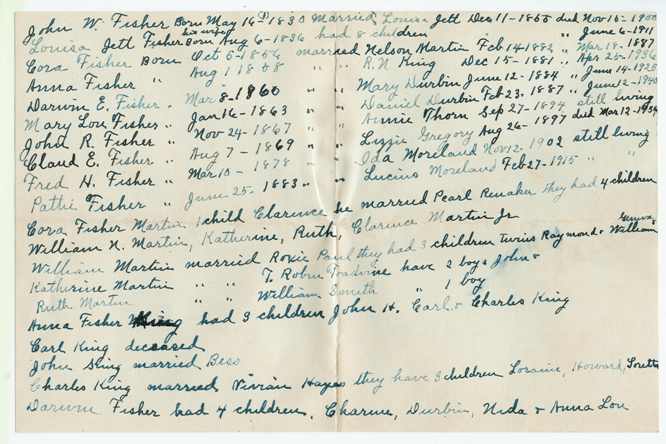 John W. Fisher Born May 16th 1830 Married Louisa Jett Dec 11-1855 died Nov 16-1900
Louisa Jett Fisher Born Aug 6-1836 had 8 children " June 6-1911
Cora Fisher Born Oct 5-1856 married Nelson Martin Feb 14 1882 " Mar 18-1887
Anna Fisher " Aug 1 1858 " " R.N. King Dec 15-1881 " Apr 25-1936
Darwin E. Fisher " Mar 8-1860 " " Mary Durbin June 12-1884 " June 14-1928
Mary Lou Fisher " Jan 16-1863 " " Daniel Durbin Feb 23, 1887 " June 12-1940
John R. Fisher " Nov 24-1867 " " Annie Thorn Sep 27-1894 still living
Claud E. Fisher " Aug 7-1869 " " Lizzie Gregory Aug 26-1897 died Mar 12-1934
Fred H. Fisher " Mar 10-1878 " " Ida Moreland Nov 12-1902 still living
Pathie Fisher " June 25-1883 " " Lucius Moreland Feb 27-1915 " "
Cora Fisher Martin 1 child Clarence he married Pearl Renaker they had 4 children
William N. Martin, Katherine, Ruth, Clarence Martin Jr
William Martin married Roxie Paul they had 3 children twins Raymond & William
Katherine Martin " " T. Robn Toadvine have 2 boys John &
Ruth Martin " " William 1 boy
Anna Fisher King had 3 children John H. Carl & Charles King
Carl King deceased
John King married Bess
Charles King married Vivian Hayes they have 3 children Loraine, Howard, Loretta
Darwin Fisher had 4 children, Charine, Durbin, Nida & Anna Lou